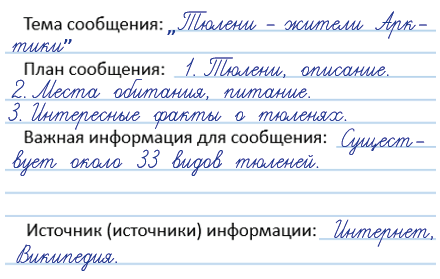 Тема сообщения: „Тюлени – жители Арк-
тики”
План сообщения: 1. Тюлени, описание.
2. Места обитания, питание.
3. Интересные факты о тюленях.
Важная информация для сообщения: Сущест-
вует около 33 видов тюленей.
Источник (источники) информации: Интернет,
Википедия.